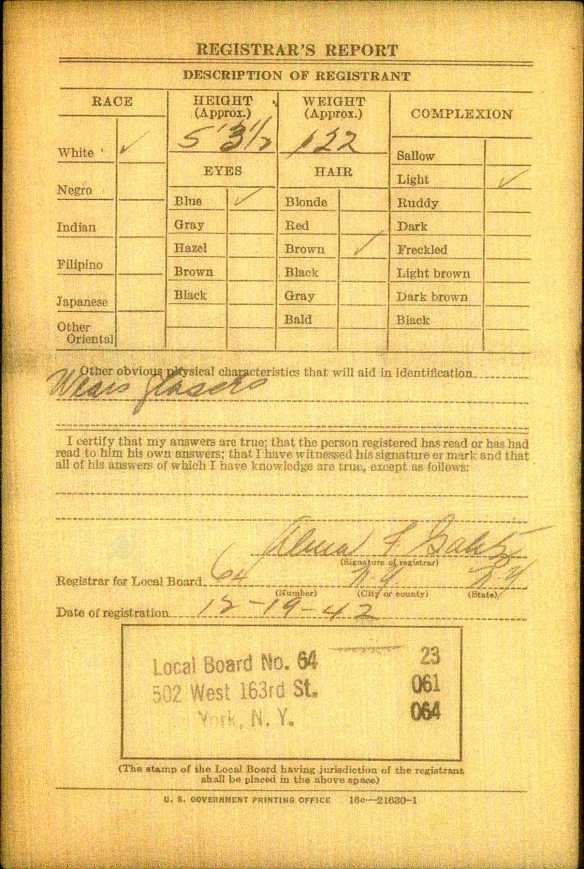 REGISTRAR'S REPORT
DESCRIPTION OF REGISTRANT
RACE
HEIGHT (Approx.)
WEIGHT (Approx.)
COMPLEXION
5' 3 1/2
122
White ✓
Negro
Indian
Filipino
Japanese
Other Oriental
EYES
Blue ✓
Gray
Hazel
Brown
Black
HAIR
Blonde
Red
Brown ✓
Black
Gray
Bald
Sallow
Light ✓
Ruddy
Dark
Freckled
Light brown
Dark brown
Black
Other obvious physical characteristics that will aid in identification
Wears glasses
I certify that my answers are true; that the person registered has read or has had
read to him his own answers; that I have witnessed his signature or mark and that
all of his answers of which I have knowledge are true, except as follows:
(Signature of registrar)
Registrar for Local Board 64 N.Y N.Y
(Number) (City or county) (State)
Date of registration 12-19-42
Local Board No. 64 23
502 West 163rd St. 061
York, N. Y. 064
(The stamp of the Local Board having jurisdiction of the registrant
shall be placed in the above space)
U. S. GOVERNMENT PRINTING OFFICE 16c—21630-1